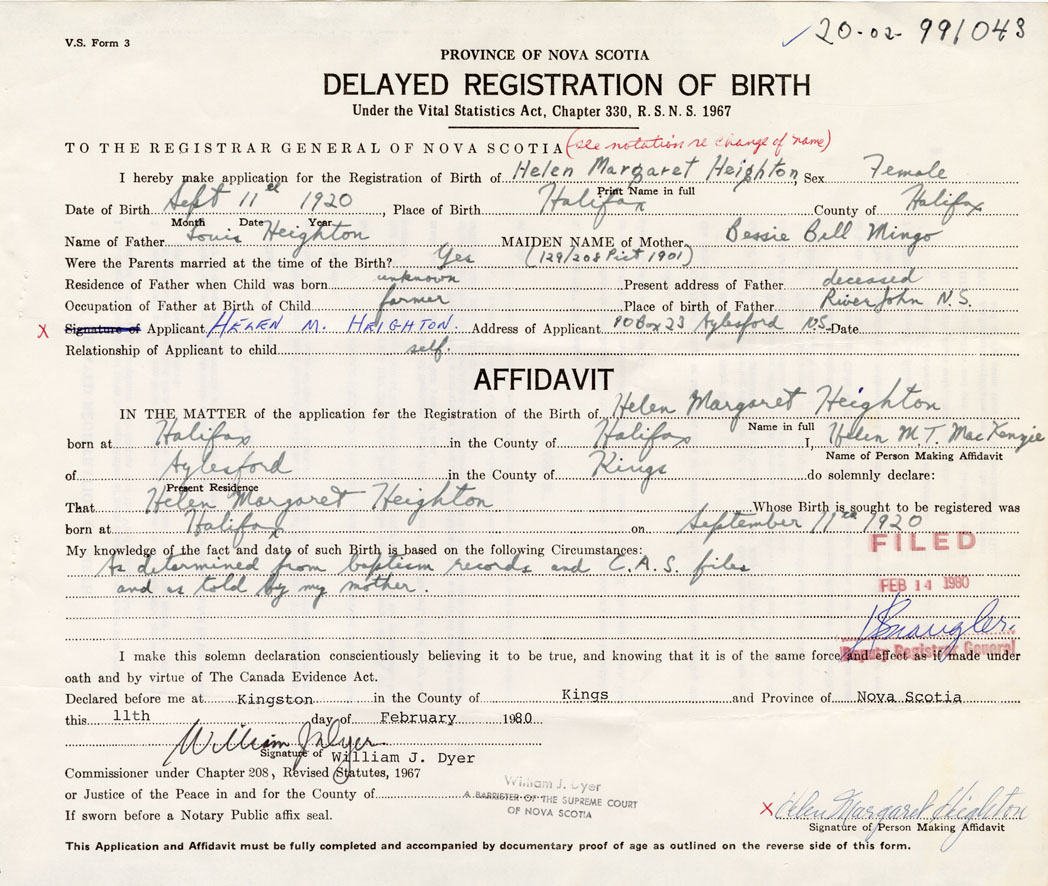 20-02-991043
V.S. Form 3
PROVINCE OF NOVA SCOTIA
DELAYED REGISTRATION OF BIRTH
Under the Vital Statistics Act, Chapter 330, R. S. N. S. 1967
TO THE REGISTRAR GENERAL OF NOVA SCOTIA (see notation re change of name)
I hereby make application for the Registration of Birth of Helen Margaret Heighton, Sex Female
Print Name in full
Date of Birth Sept 11th 1920, Place of Birth Halifax County of Halifax
Month Date Year
Name of Father Louis Heighton MAIDEN NAME of Mother Bessie Bell Mingo
Were the Parents married at the time of the Birth? Yes (129/208 Pict 1901)
Residence of Father when Child was born unknown Present address of Father deceased
Occupation of Father at Birth of Child farmer Place of birth of Father River John N.S.
X Signature of Applicant HELEN M. HEIGHTON. Address of Applicant PO Box 23 Aylesford N.S. Date
Relationship of Applicant to child self.
AFFIDAVIT
IN THE MATTER of the application for the Registration of the Birth of Helen Margaret Heighton
Name in full
born at Halifax in the County of Halifax I, Helen M.T. MacKenzie
Name of Person Making Affidavit
of Aylesford in the County of Kings do solemnly declare:
Present Residence
That Helen Margaret Heighton Whose Birth is sought to be registered was
born at Halifax on September 11th 1920
My knowledge of the fact and date of such Birth is based on the following Circumstances:
FILED
As determined from baptism records and C.A.S. files
and as told by my mother.
FEB 14 1980
Deputy Registrar General
I make this solemn declaration conscientiously believing it to be true, and knowing that it is of the same force and effect as if made under
oath and by virtue of The Canada Evidence Act.
Declared before me at Kingston in the County of Kings and Province of Nova Scotia
this 11th day of February 1980
William J Dyer
Signature of William J. Dyer
Commissioner under Chapter 208, Revised Statutes, 1967
or Justice of the Peace in and for the County of
If sworn before a Notary Public affix seal.
William J. Dyer
A BARRISTER OF THE SUPREME COURT
OF NOVA SCOTIA
X Helen Margaret Heighton
Signature of Person Making Affidavit
This Application and Affidavit must be fully completed and accompanied by documentary proof of age as outlined on the reverse side of this form.